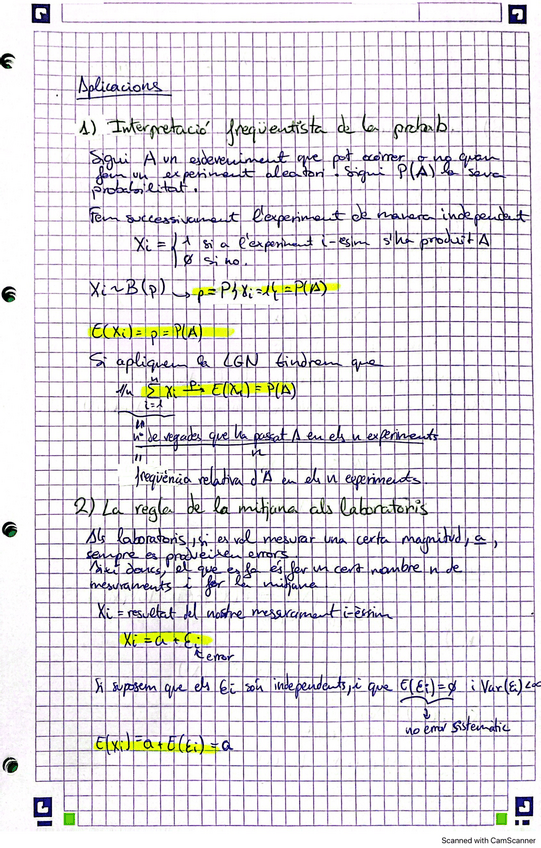 Aplicacions
1) Interpretació freqüentista de la probab.
Sigui A un esdeveniment que pot ocórrer o no quan
fem un experiment aleatori. Sigui P(A) la seva
probabilitat.
Fem successivament l'experiment de manera independent
Xi = { 1 si a l'experiment i-èsim s'ha produït A
0 si no.
Xi ~ B(p) → p = P{Xi = 1} = P(A)
E(Xi) = p = P(A)
Si apliquem la LGN tindrem que
1/n Σ_{i=1}^{n} Xi → E(Xi) = P(A)
nº de vegades que ha passat A en els n experiments
n
freqüència relativa d'A en els n experiments.
2) La regla de la mitjana als laboratoris
Als laboratoris, si es vol mesurar una certa magnitud, a,
sempre es produeixen errors.
Així doncs, el que es fa és fer un cert nombre n de
mesuraments i fer la mitjana
Xi = resultat del nostre mesurament i-èssim
Xi = a + Ei
error
Si suposem que els Ei són independents, i que E(Ei) = 0 i Var(Ei) < ∞
no error sistemàtic
E(Xi) = a + E(Ei) = a
Scanned with CamScanner